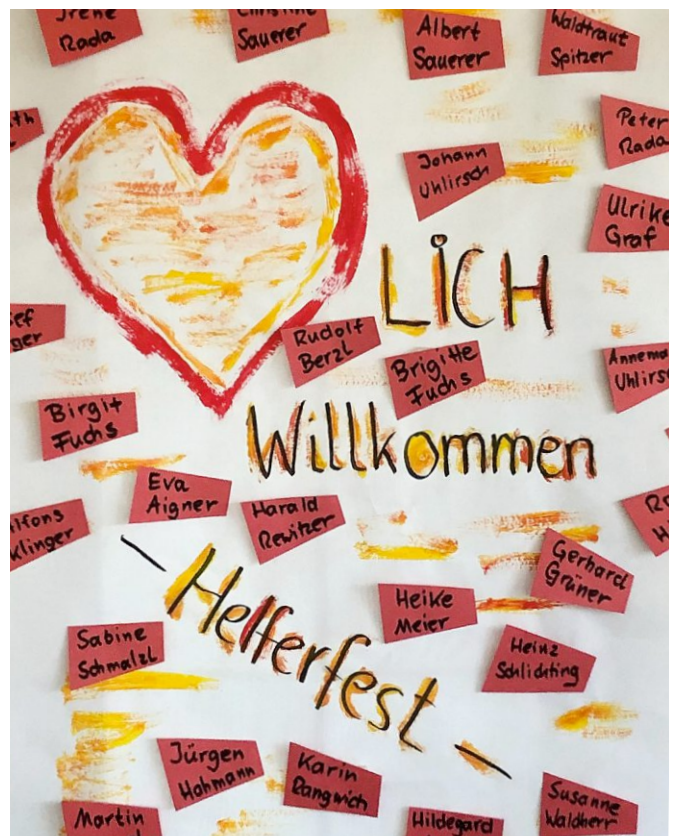 Irene
Rada
Christine
Sauerer
Albert
Sauerer
Waldtraut
Spitzer
Peter
Rada
Johann
Uhlirsch
Ulrike
Graf
LiCH
Rudolf
Berzl
Brigitte
Fuchs
Birgit
Fuchs
Willkommen
Eva
Aigner
Harald
Rewitzer
Gerhard
Grüner
Heike
Meier
- Helferfest -
Sabine
Schmalzl
Heinz
Schlichting
Jürgen
Hohmann
Karin
Dangwich
Susanne
Waldherr
Martin
Hildegard